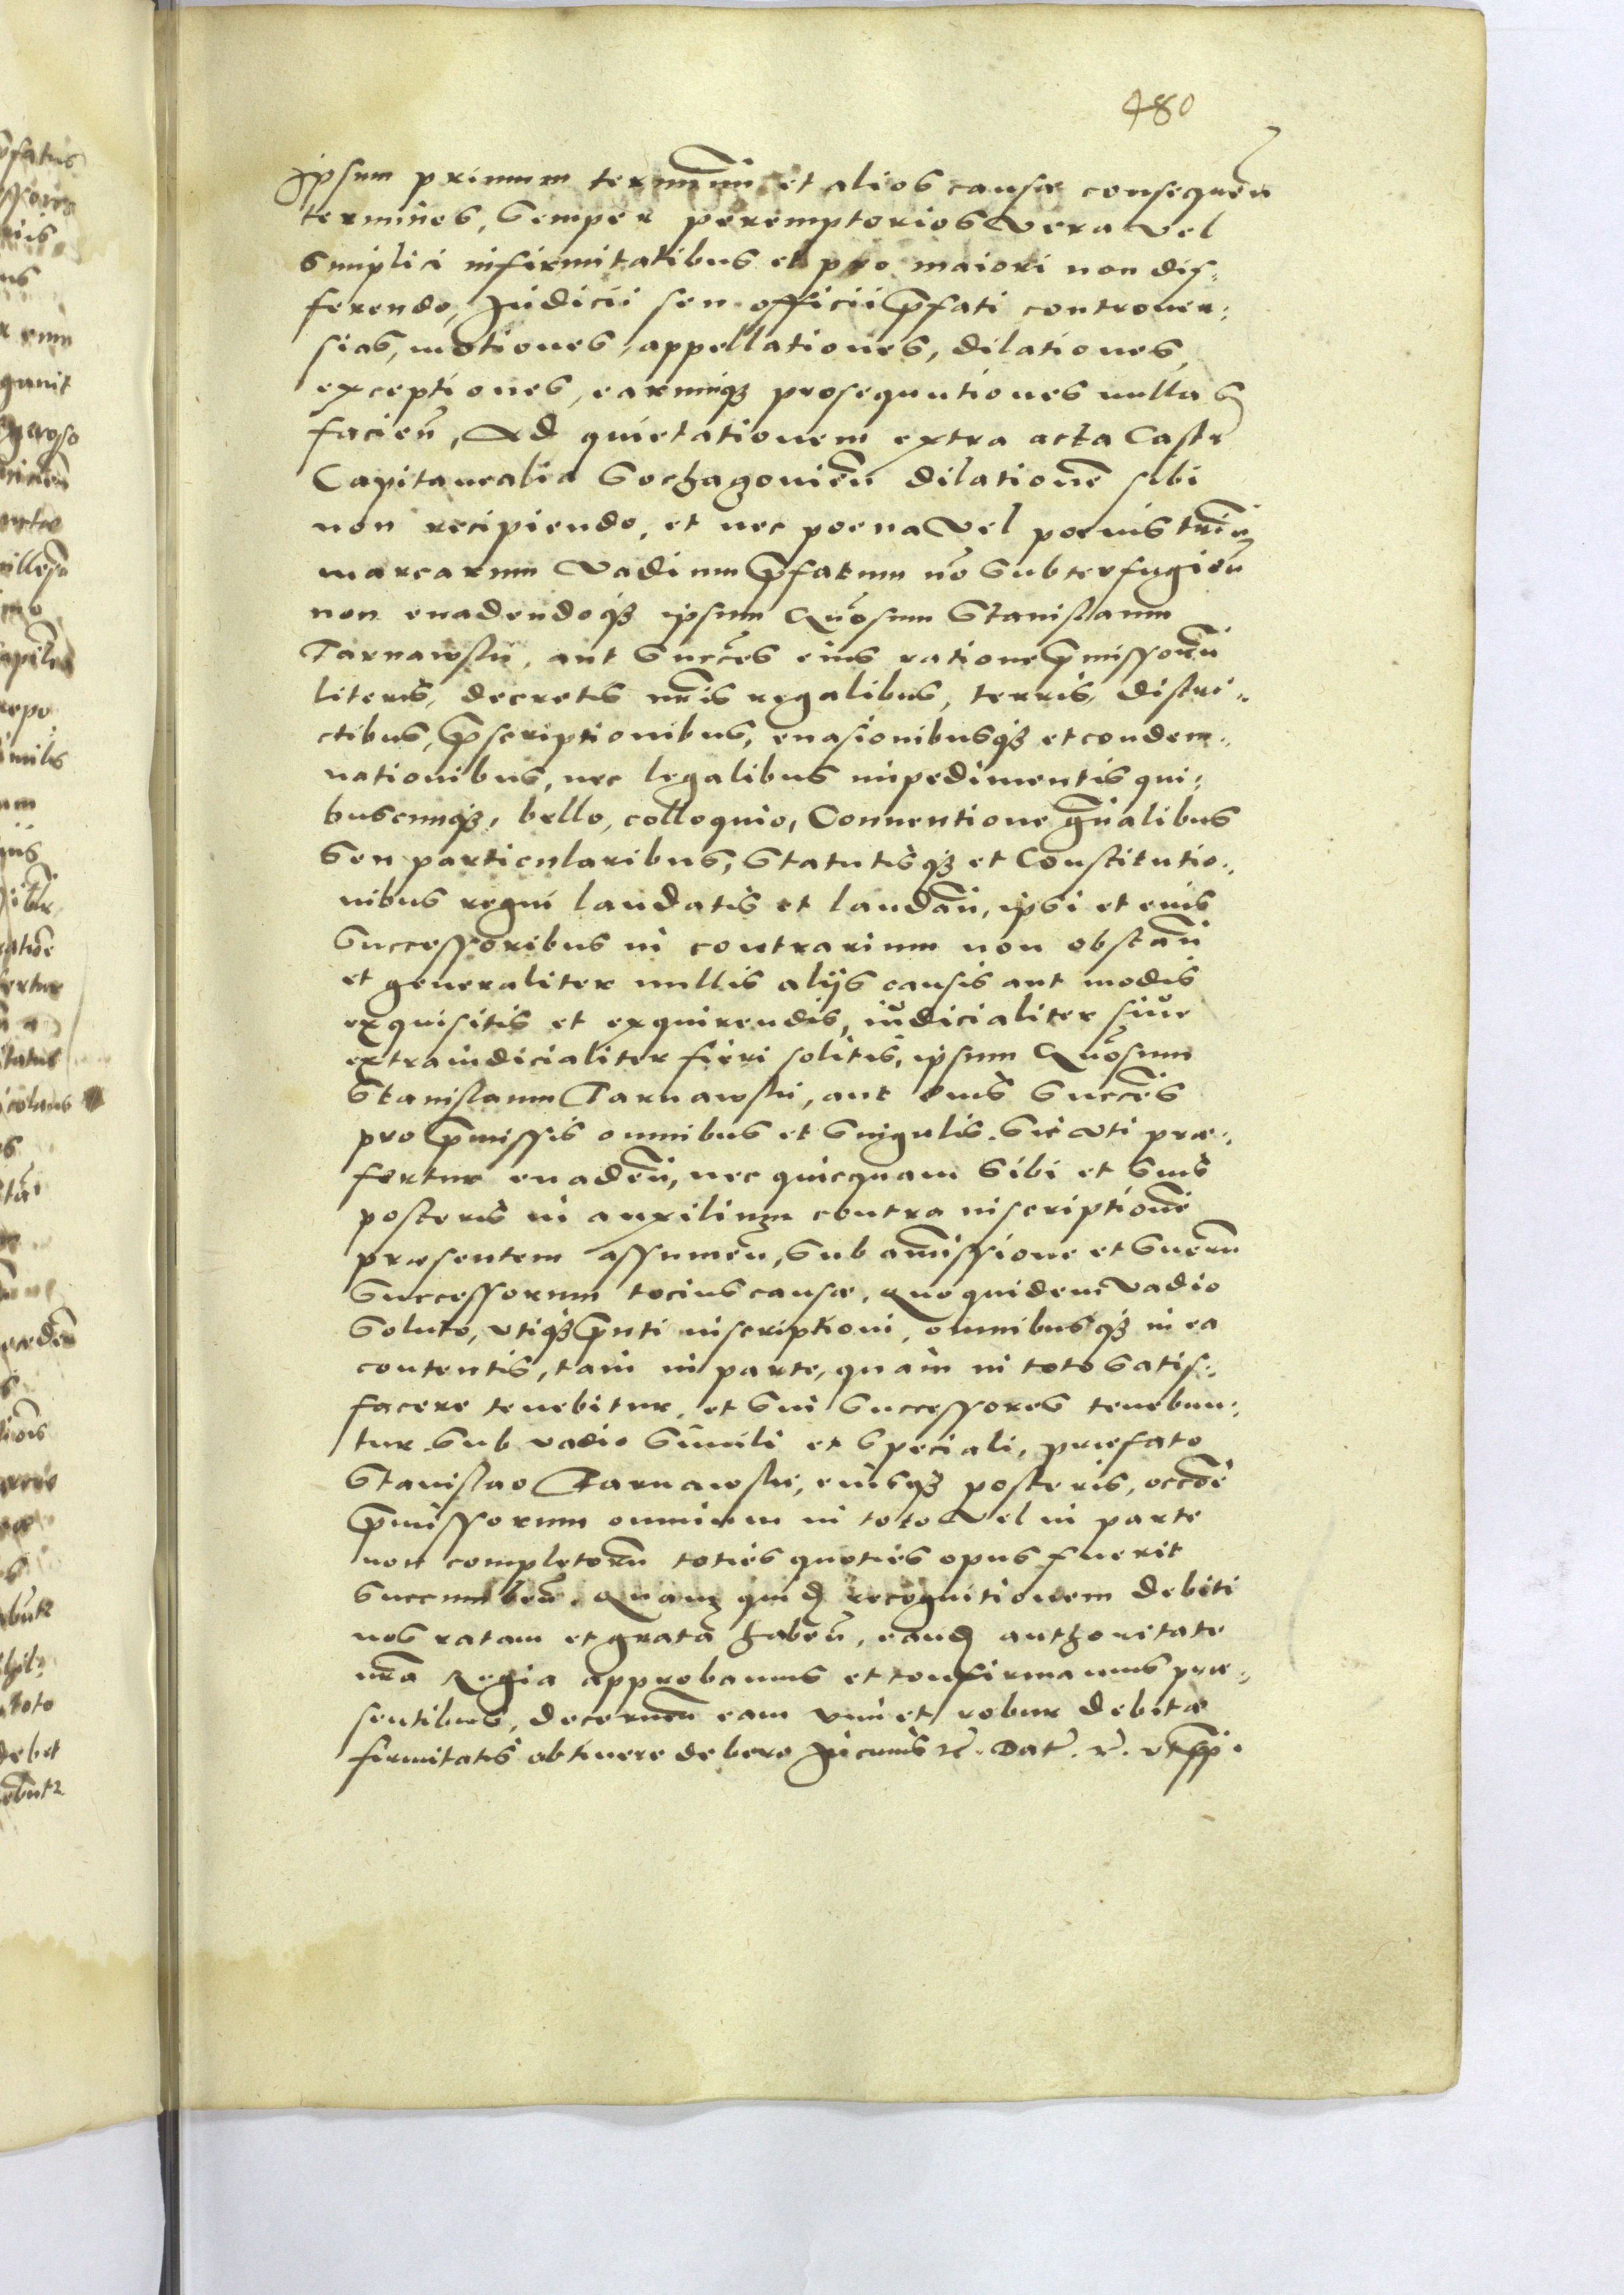 480
Ipsum primum terminum et alios causæ consequen̄
terminos, Semper peremptorios Vera vel
Simplici infirmitatibus et pro maiori non dif:
ferendo, Judicii seu officii p̄fati controuer:
sias, motiones, appellationes, dilationes,
exceptiones, earumq₃ prosequutiones nullas
facien̄, Ad quietationem extra acta Castr̄
Capitanealia Sochazouien̄ dilationē sibi
non recipiendo, et nec poena Vel poenis triū
marcarum Vadium p̄fatum nō Subterfugien̄
non euadendoq₃ ipsum Gn̄osum Stanislaum
Tarnawski, aut Succēs eius ratione p̄missorū
literis, decretis nr̄is regalibus, terris, distri:
ctibus, p̄scriptionibus, euasionibusq₃ et condem:
nationibus, nec legalibus impedimentis qui:
buscunq₃, bello, colloquio, Conuentione gn̄alibus
Seu particularibus, Statutisq₃ et Constitutio:
nibus regni laudatis et laudan̄, ipsi et eius
Successoribus in contrarium non obstan̄
et generaliter nullis alijs causis aut modis
exquisitis et exquirendis, iudicialiter siue
extraiudicialiter fieri solitis, ipsum Gn̄osum
Stanislaum Tarnawski, aut eius Succēs
pro p̄missis omnibus et Singulis. Sic vti præ:
fertur euaden̄, nec quicquam Sibi et Suis
posteris in auxilium contra inscriptionē
præsentem assumen̄, Sub amissione et Suorū
Successorum tocius causæ, quo quidem Vadio
Soluto, vtiq₃ p̄nti inscriptioni, omnibusq₃ in ea
contentis, tam in parte, quam in toto Satis:
facere tenebitur, et Sui Successores tenebun:
tur Sub vadio Simili et Speciali, præfato
Stanislao Tarnawski, eiusq₃ posteris, occōe
p̄missorum omnium in toto Vel in parte
non completorū toties quoties opus fuerit
Succumben̄. Quam quidē recognitionem debiti
nos ratam et gratā haben̄, eandē authoritate
nr̄a Regia approbamus et confirmamus præ:
sentibus, decernen̄ eam vim et robur debitæ
firmitatis obtinere debere In cuius rē. Dat̄. rē. vt sup̄.